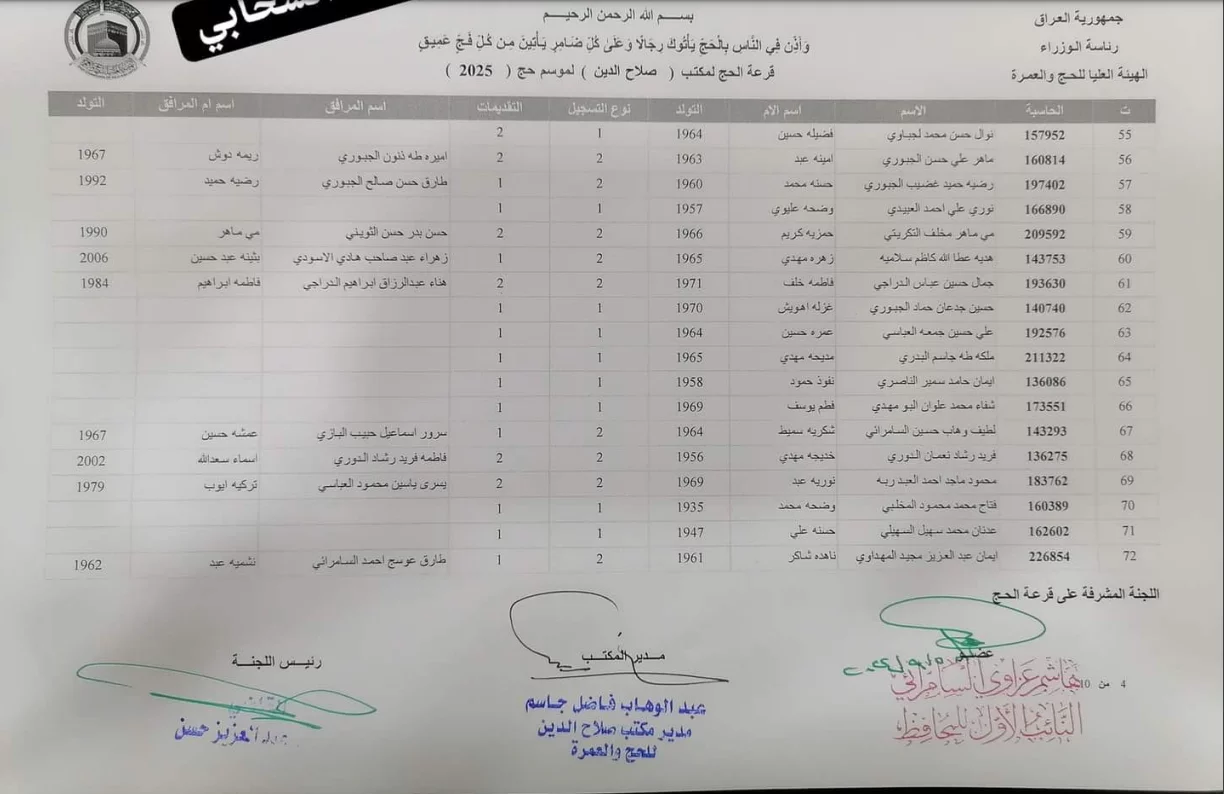 السحابي
بسم الله الرحمن الرحيم
جمهورية العراق
وَأَذِّن فِي النَّاسِ بِالْحَجِّ يَأْتُوكَ رِجَالًا وَعَلَىٰ كُلِّ ضَامِرٍ يَأْتِينَ مِن كُلِّ فَجٍّ عَمِيقٍ
رئاسة الوزراء
قرعة الحج لمكتب ( صلاح الدين ) لموسم حج ( 2025 )
الهيئة العليا للحج والعمرة
ت الحاسبة الاسم اسم الام التولد نوع التسجيل التقديمات اسم المرافق اسم ام المرافق التولد
55 157952 نوال حسن محمد لجباوي فضيله حسين 1964 1 2
56 160814 ماهر علي حسن الجبوري امينه عبد 1963 2 2 اميره طه ذنون الجبوري ريمه دوش 1967
57 197402 رضيه حميد غضيب الجبوري حسنه محمد 1960 2 1 طارق حسن صالح الجبوري رضيه حميد 1992
58 166890 نوري علي احمد العبيدي وضحه عليوي 1957 1 1
59 209592 مي ماهر مخلف التكريتي حمزيه كريم 1966 2 2 حسن بدر حسن الثويني مي ماهر 1990
60 143753 هديه عطا الله كاظم سلاميه زهره مهدي 1965 2 1 زهراء عبد صاحب هادي الاسودي بثينه عبد حسين 2006
61 193630 جمال حسين عباس الدراجي فاطمه خلف 1971 2 2 هناء عبدالرزاق ابراهيم الدراجي فاطمه ابراهيم 1984
62 140740 حسين جدعان حماد الجبوري غزله اهويش 1970 1 1
63 192576 علي حسين جمعه العباسي عمره حسين 1964 1 1
64 211322 ملكه طه جاسم البدري مديحه مهدي 1965 1 1
65 136086 ايمان حامد سمير الناصري نفوذ حمود 1958 1 1
66 173551 شفاء محمد علوان البو مهدي فطم يوسف 1969 1 1
67 143293 لطيف وهاب حسين السامرائي شكريه سميط 1964 2 1 سرور اسماعيل حبيب البازي عمشه حسين 1967
68 136275 فريد رشاد نعمان الدوري خديجه مهدي 1956 2 2 فاطمه فريد رشاد الدوري اسماء سعدالله 2002
69 183762 محمود ماجد احمد العبد ربه نوريه عبد 1969 2 2 يسرى ياسين محمود العباسي تركيه ايوب 1979
70 160389 فتاح محمد محمود المخلبي وضحه محمد 1935 1 1
71 162602 عدنان محمد سهيل السهيلي حسنه علي 1947 1 1
72 226854 ايمان عبد العزيز مجيد المهداوي ناهده شاكر 1961 2 1 طارق عوسج احمد السامرائي نشميه عبد 1962
اللجنة المشرفة على قرعة الحج
عضو
مدير المكتب
رئيس اللجنة
4 من 10
هاشم عزاوي السامرائي
النائب الأول للمحافظ
عبد الوهاب فاضل جاسم
مدير مكتب صلاح الدين
للحج والعمرة
عبد العزيز حسن